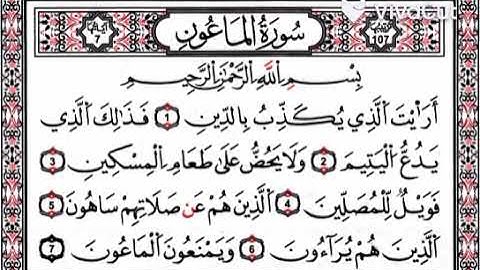 آياتها 7 سُورَةُ الْمَاعُونَ 107
VivaCut
بِسْمِ اللَّهِ الرَّحْمَٰنِ الرَّحِيمِ
أَرَأَيْتَ الَّذِي يُكَذِّبُ بِالدِّينِ 1 فَذَالِكَ الَّذِي
يَدُعُّ الْيَتِيمَ 2 وَلَا يَحُضُّ عَلَى طَعَامِ الْمِسْكِينِ 3
فَوَيْلٌ لِّلْمُصَلِّينَ 4 الَّذِينَ هُمْ عَن صَلَاتِهِمْ سَاهُونَ 5
الَّذِينَ هُمْ يُرَآءُونَ 6 وَيَمْنَعُونَ الْمَاعُونَ 7